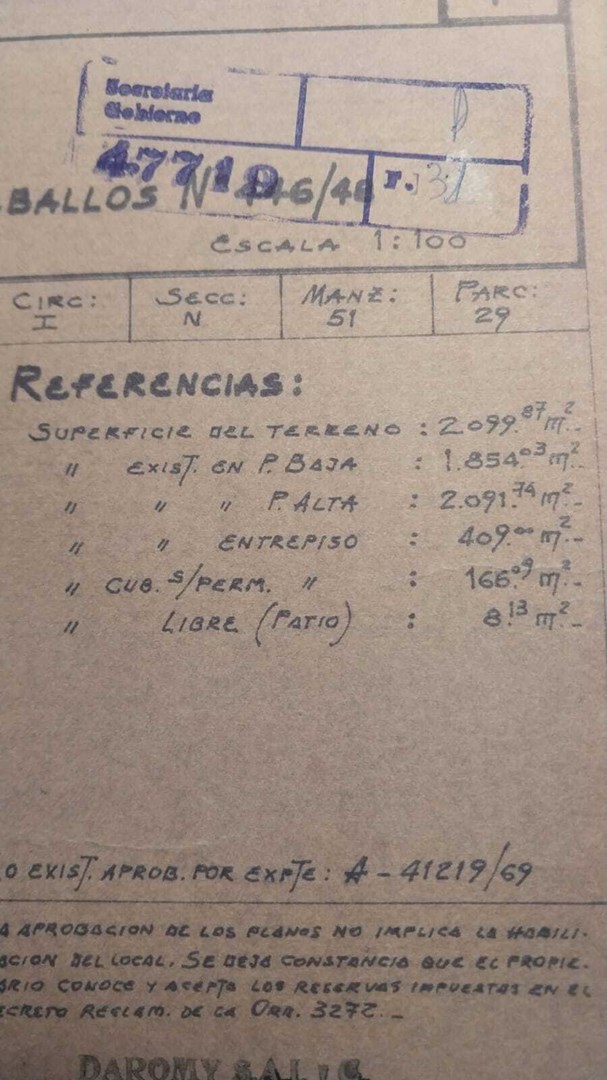 Secretaria
Gobierno
47719 r.
BALLOS Nº 446/48
ESCALA 1:100
CIRC: SECC: MANZ: PARC:
I N 51 29
REFERENCIAS:
SUPERFICIE DEL TERRENO : 2.099.87 m2.-
" EXIST. EN P. BAJA : 1.854.03 m2.-
" " " P. ALTA : 2.091.74 m2.-
" " ENTREPISO : 409.00 m2.-
" CUB. S/PERM. " : 166.09 m2.-
" LIBRE (PATIO) : 8.13 m2.-
O EXIST. APROB. POR EXPTE: A - 41219/69
A APROBACION DE LOS PLANOS NO IMPLICA LA HABILI-
ACION DEL LOCAL. SE DEJA CONSTANCIA QUE EL PROPIE-
ARIO CONOCE Y ACEPTA LOS RESERVAS IMPUESTAS EN EL
ECRETO REGLAM. DE LA ORR. 3272.-
DAROMY S.A.I. y C.